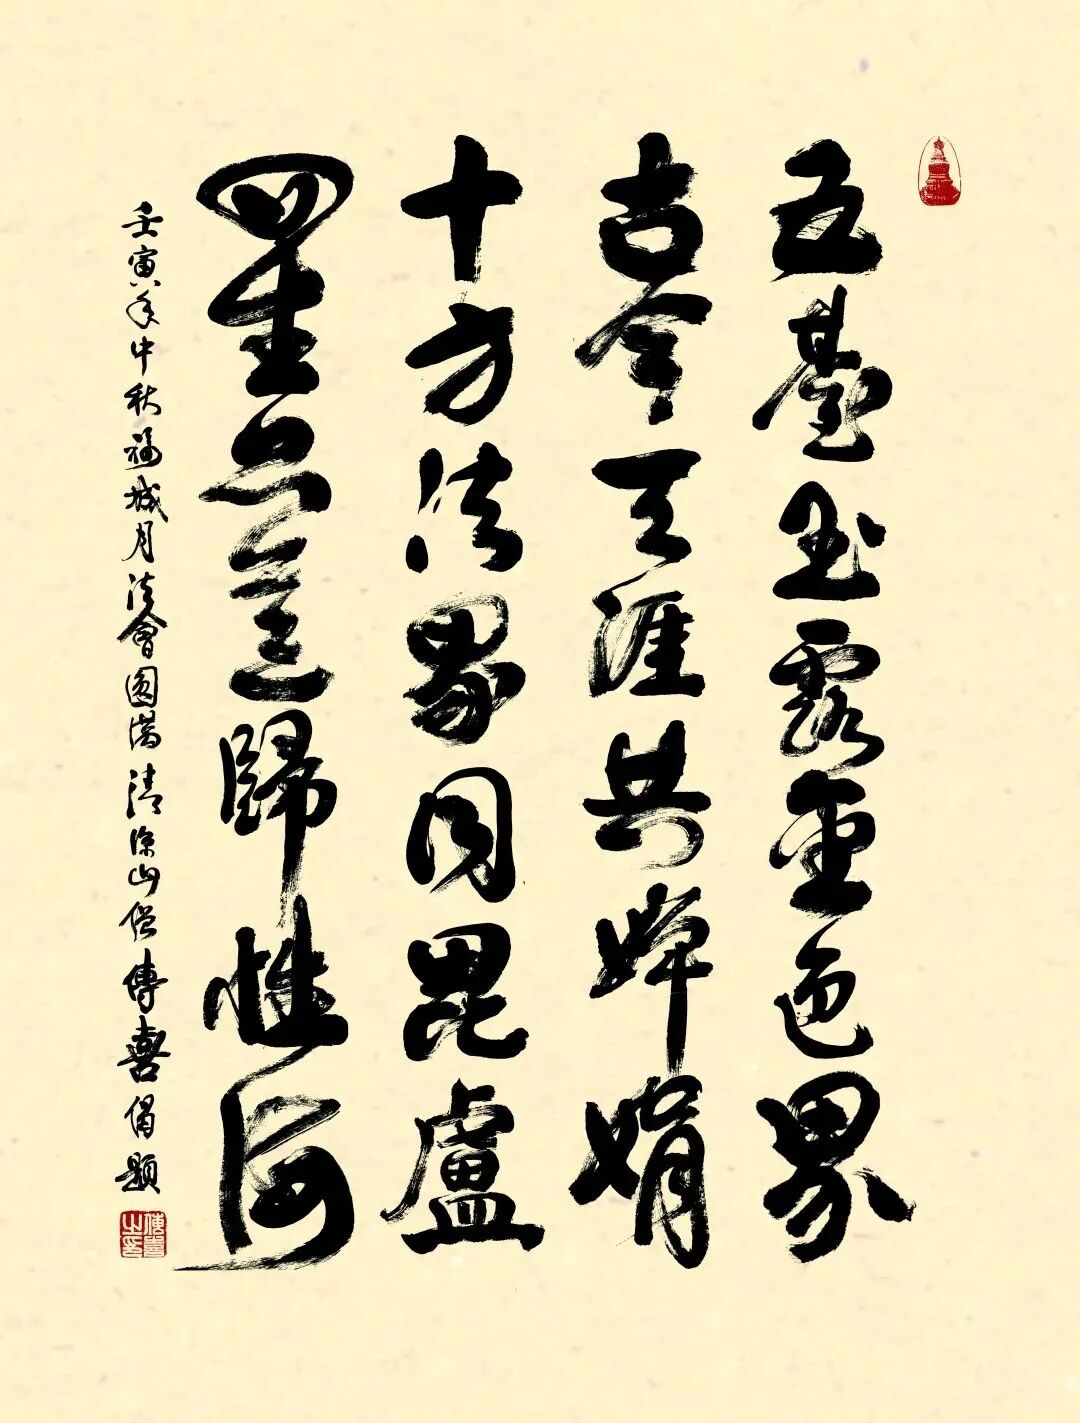 五臺玉露金色界
古今天涯共嬋娟
十方法界同毘盧
眾生無盡歸性海
壬寅年中秋福城月法會圓滿清涼山僧傳喜偈題